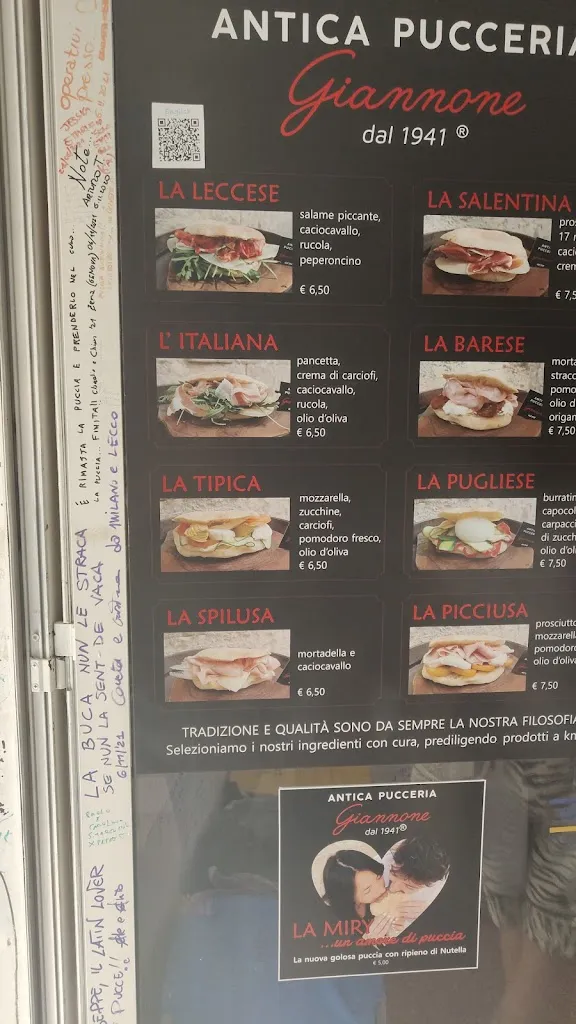 ANTICA PUCCERIA
Giannone
dal 1941 ®
LA LECCESE
salame piccante,
caciocavallo,
rucola,
peperoncino
€ 6,50
LA SALENTINA
€ 7,5
L' ITALIANA
pancetta,
crema di carciofi,
caciocavallo,
rucola,
olio d'oliva
€ 6,50
LA BARESE
morta
stracc
pomo
olio d
origan
€ 7,50
LA TIPICA
mozzarella,
zucchine,
carciofi,
pomodoro fresco,
olio d'oliva
€ 6,50
LA PUGLIESE
burratin
capocol
carpacci
di zucch
olio d'ol
€ 7,50
LA SPILUSA
mortadella e
caciocavallo
€ 6,50
LA PICCIUSA
prosciutto
mozzarell
pomodoro
olio d'oliva
€ 7,50
TRADIZIONE E QUALITÀ SONO DA SEMPRE LA NOSTRA FILOSOFIA
Selezioniamo i nostri ingredienti con cura, prediligendo prodotti a km
ANTICA PUCCERIA
Giannone
dal 1941®
LA MIRY
...un amore di puccia
La nuova golosa puccia con ripieno di Nutella
€ 5,00
È RIMASTA LA PUCCIA E PRENDERLO NEL
LA BUCA NUN LE STRACA
SE NUN LA SENT DE VACA
6/11/21
da MILANO e LECCO
IL LATIN LOVER
PUCCE!!